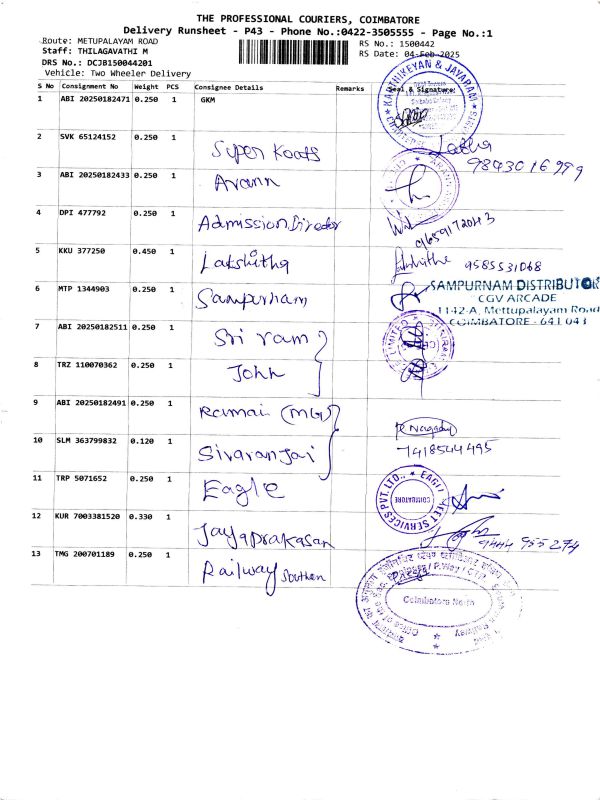 THE PROFESSIONAL COURIERS, COIMBATORE
Delivery Runsheet - P43 - Phone No.:0422-3505555 - Page No.:1
Route: METUPALAYAM ROAD
RS No.: 1500442
Staff: THILAGAVATHI M
RS Date: 04-Feb-2025
DRS No.: DCJB150044201
Vehicle: Two Wheeler Delivery
S No Consignment No Weight PCS Consignee Details Remarks Seal & Signature
1 ABI 20250182471 0.250 1 GKM
KARTHIKEYAN & JAYARAM
2 SVK 65124152 0.250 1 Super Koats Latha
9843016999
3 ABI 20250182433 0.250 1 Avann
4 DPI 477792 0.250 1 Admission Director
9659172043
5 KKU 377250 0.450 1 Lakshitha 9585531068
6 MTP 1344903 0.250 1 Sampurnam
SAMPURNAM DISTRIBUTOR
CGV ARCADE
1142-A, Mettupalayam Road
COIMBATORE - 641 043
7 ABI 20250182511 0.250 1 Sri ram
8 TRZ 110070362 0.250 1 John
9 ABI 20250182491 0.250 1 Ramai
10 SLM 363799832 0.120 1 Sivaranjai
R Nagaday
7418544495
11 TRP 5071652 0.250 1 Eagle
EAGLE FLEET SERVICES PVT. LTD.,
COIMBATORE
12 KUR 7003381520 0.330 1 Jayaprakasan
9444 955 274
13 TMG 200701189 0.250 1 Railway Southern
Coimbatore North